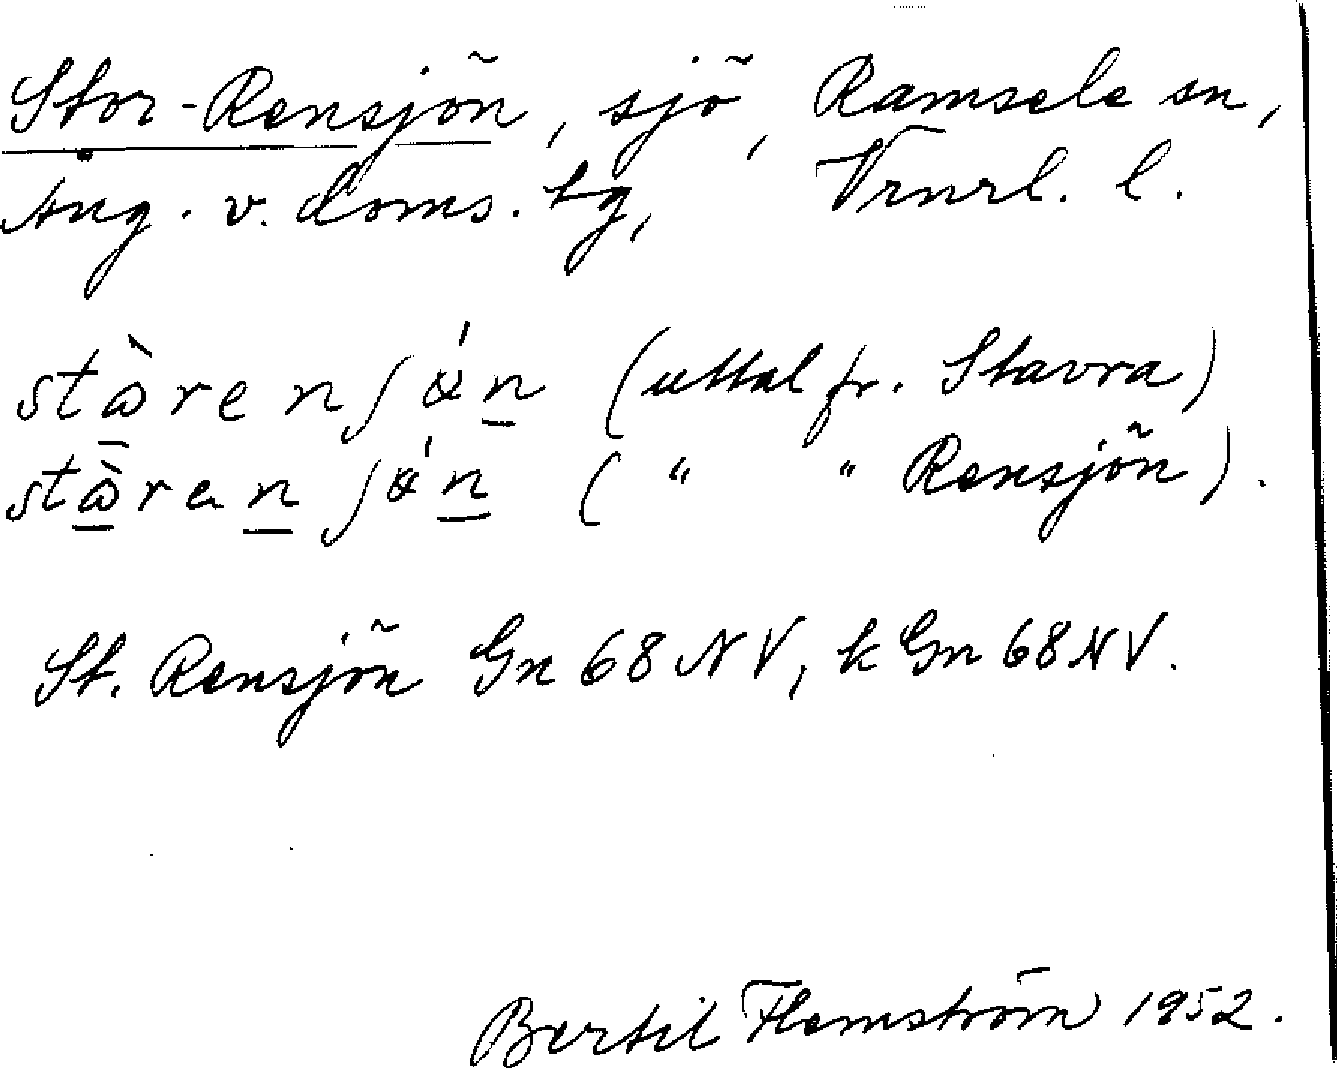 Stor-Rensjön, sjö, Ramsele sn,
Ång. v. doms. tg, Vrnrl. l.
stὼrenʃάn (uttal fr. Stavra)
stὼranʃάn ( " " Rensjön).
St. Rensjön Gn 68 NV, k Gn 68 NV.
Bertil Flemström 1952.